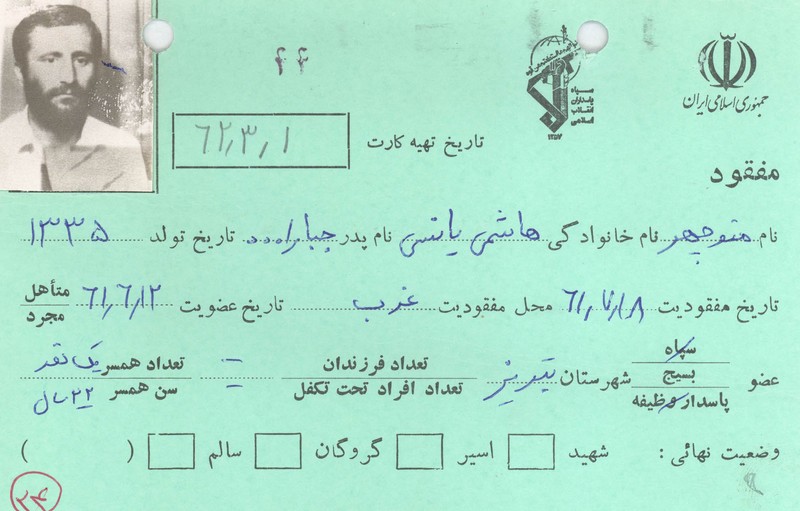 ۴۴
سپاه
پاسداران
انقلاب
اسلامی
۱۳۵۷
جمهوری اسلامی ایران
تاریخ تهیه کارت ۶۲٫۳٫۱
مفقود
نام منوچهر نام خانوادگی هاشمی نام پدر جبار تاریخ تولد ۱۳۳۵
تاریخ مفقودیت محل مفقودیت غرب تاریخ عضویت ۶۱٫۶٫۱۲ متأهل
مجرد
عضو سپاه
بسیج
پاسدار وظیفه
شهرستان تبریز تعداد فرزندان = تعداد همسر یک نفر
تعداد افراد تحت تکفل سن همسر ۲۲ سال
وضعیت نهائی : شهید اسیر گروگان سالم ( )
۲۴